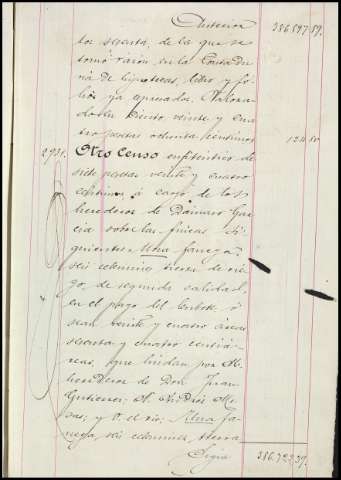 Anterior 386.597.89.
tos sesenta, de la que se
tomó razón en la Contadu-
ria de hipotecas, libro y fo-
lios ya espresados. Valora-
do en ciento veinte y cua-
tro pesetas ochenta centimos 124.80
2931. Otro Censo enfiteutico de
siete pesetas veinte y cuatro
centimos á cargo de los
herederos de Dámaso Gar-
cia sobre las fincas si-
guientes: Una fanega,
seis celemines tierra de rie-
go, de segunda calidad,
en el pago del ó
sean veinte y cuatro áreas
sesenta y cuatro centiá-
reas, que lindan por
herederos de Don Juan
Gutierrez; Andrés
y O. el rio; Una fa-
nega, seis celemines tierra
Sigue 386.722.39.